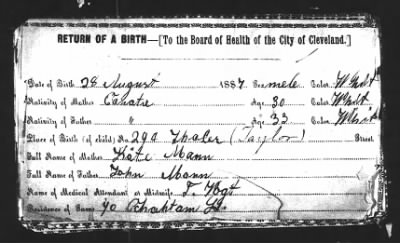 RETURN OF A BIRTH—[To the Board of Health of the City of Cleveland.]
Date of Birth 28 August 1887 Sex male Color White
Nativity of Mother Age, 30 Color, White
Nativity of Father " Age, 33 Color, White
Place of Birth (of child) No. 290 Thaler (Taylor) Street
Full Name of Mother, Kate Mann
Full Name of Father, John Mann
Name of Medical Attendant or Midwife
Residence of Same 70 Chahtam St.